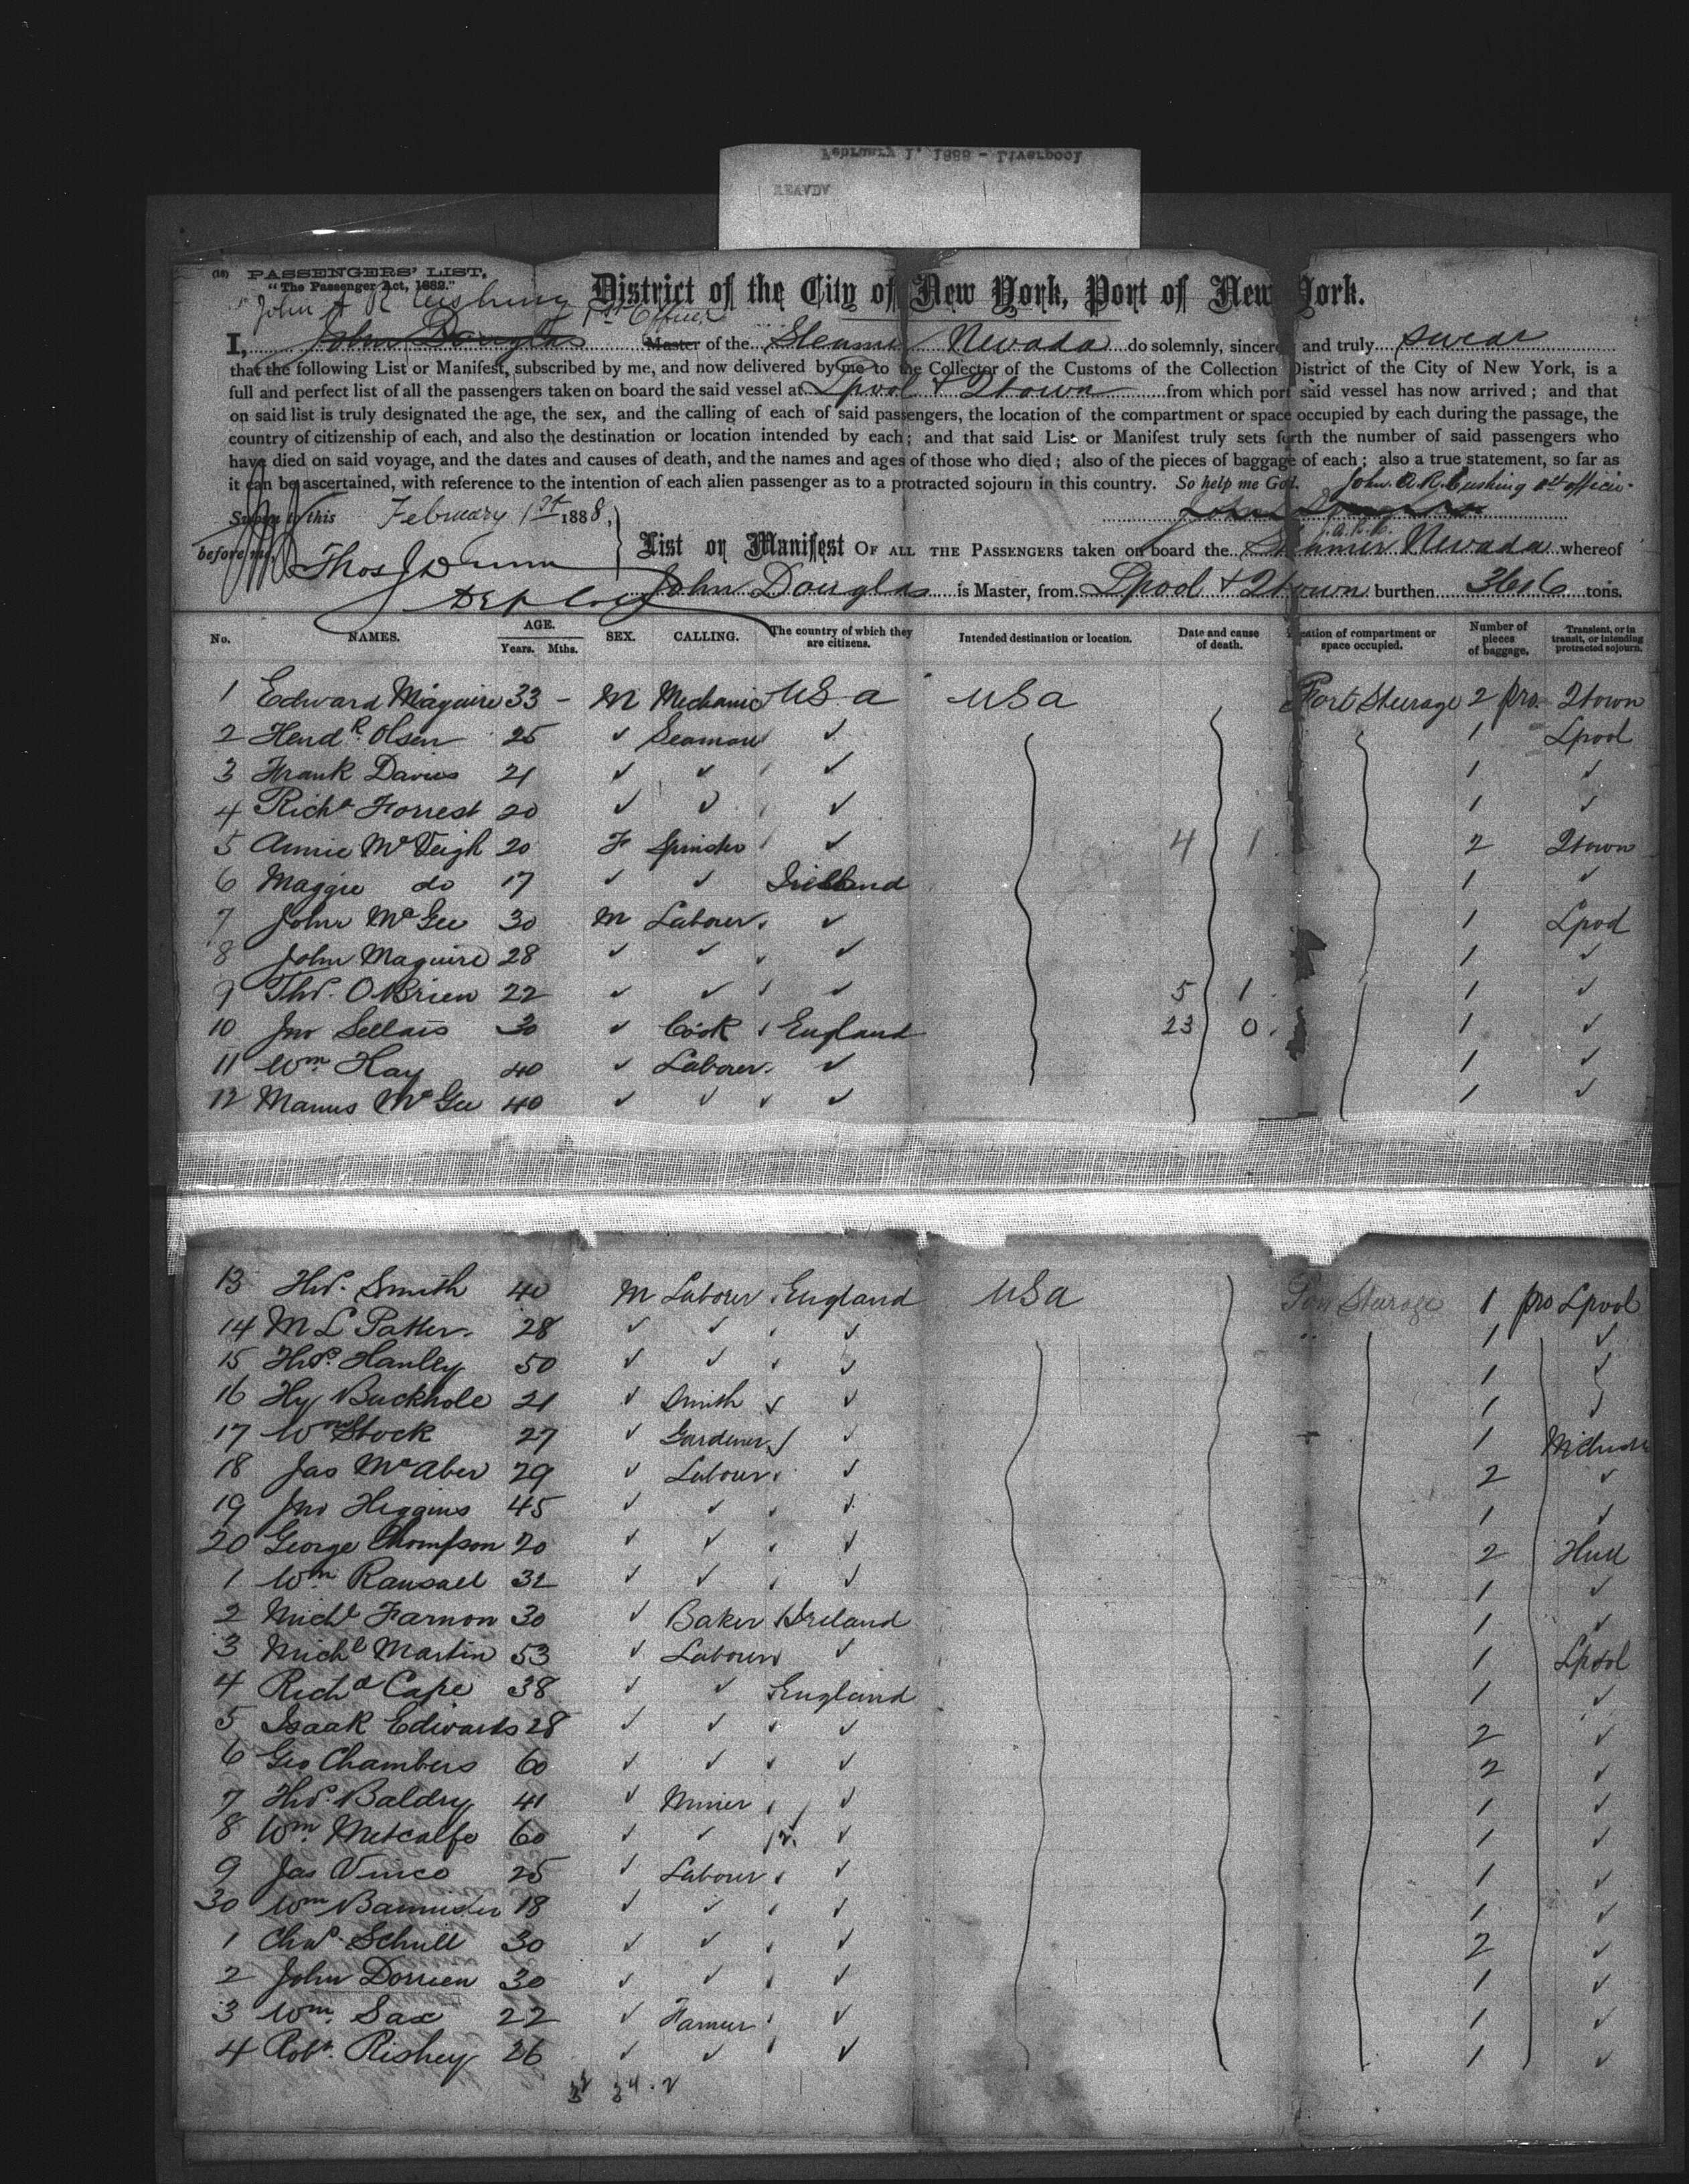 (18) PASSENGERS' LIST.
"The Passenger Act, 1882."
District of the City of New York, Port of New York.
John A R Cushing 1st Officer
I, John Douglas Master of the Steamer Nevada do solemnly, sincerely and truly swear
that the following List or Manifest, subscribed by me, and now delivered by me to the Collector of the Customs of the Collection District of the City of New York, is a
full and perfect list of all the passengers taken on board the said vessel at Lpool & Qtown from which port said vessel has now arrived; and that
on said list is truly designated the age, the sex, and the calling of each of said passengers, the location of the compartment or space occupied by each during the passage, the
country of citizenship of each, and also the destination or location intended by each; and that said List or Manifest truly sets forth the number of said passengers who
have died on said voyage, and the dates and causes of death, and the names and ages of those who died; also of the pieces of baggage of each; also a true statement, so far as
it can be ascertained, with reference to the intention of each alien passenger as to a protracted sojourn in this country. So help me God. John A. R. Cushing 1st officer
Sworn to this February 1st 1888, John Douglas
before me, Thos J Dunn List or Manifest OF ALL THE PASSENGERS taken on board the Steamer Nevada whereof
John Douglas is Master, from Lpool & Qtown burthen 3616 tons.
No. NAMES. AGE. Years. Mths. SEX. CALLING. The country of which they are citizens. Intended destination or location. Date and cause of death. Location of compartment or space occupied. Number of pieces of baggage. Transient, or in transit, or intending protracted sojourn.
1 Edward Maguire 33 - M Mechanic USa USa Port Sturage 2 pro. Qtown
2 Hendk. Olsen 25 ✓ Seaman ✓ 1 Lpool
3 Frank Davis 21 ✓ ✓ ✓ 1 ✓
4 Richd Forrest 20 ✓ ✓ ✓ 1 ✓
5 Annie McVeigh 20 F Spinster ✓ 4 1 2 Qtown
6 Maggie do 17 ✓ ✓ Ireland 1 ✓
7 John McGee 30 M Labourer ✓ 1 Lpool
8 John Maguire 28 ✓ ✓ ✓ 1 ✓
9 Thos. OBrien 22 ✓ ✓ ✓ 5 1 1 ✓
10 Jno Sellars 30 ✓ Cook England 23 0 1 ✓
11 Wm Hay 40 ✓ Labourer ✓ 1 ✓
12 Manus McGee 40 ✓ ✓ ✓ 1 ✓
13 Thos. Smith 40 M Labourer England USa Sturage 1 pro Lpool
14 M L Patter 28 ✓ ✓ ✓ 1 ✓
15 Thos. Hanley 50 ✓ ✓ ✓ 1 ✓
16 Hy Buckhole 21 ✓ Smith ✓ 1
17 Wm Stock 27 ✓ Gardener ✓ 1
18 Jas McAber 29 ✓ Labour ✓ 2 ✓
19 Jno Higgins 45 ✓ ✓ ✓ 1 ✓
20 George Thompson 20 ✓ ✓ ✓ 2 Hull
1 Wm Ransael 32 ✓ ✓ ✓ 1 ✓
2 Michl Farnon 30 ✓ Baker Ireland 1 ✓
3 Michl Martin 53 ✓ Labourer ✓ 1 Lpool
4 Richd Cape 38 ✓ ✓ England 1 ✓
5 Isaak Edwards 28 ✓ ✓ ✓ 2 ✓
6 Geo Chambers 60 ✓ ✓ ✓ 2 ✓
7 Thos. Baldry 41 ✓ Miner ✓ 1 ✓
8 Wm. Metcalfe 60 ✓ ✓ ✓ 1 ✓
9 Jas Vince 25 ✓ Labourer ✓ 1 ✓
30 Wm Bannister 18 ✓ ✓ ✓ 1 ✓
1 Chas Schull 30 ✓ ✓ ✓ 2 ✓
2 John Dorrien 30 ✓ ✓ ✓ 1 ✓
3 Wm. Sax 22 ✓ Farmer ✓ 1 ✓
4 Robt. Rishey 26 ✓ ✓ ✓ 1 ✓